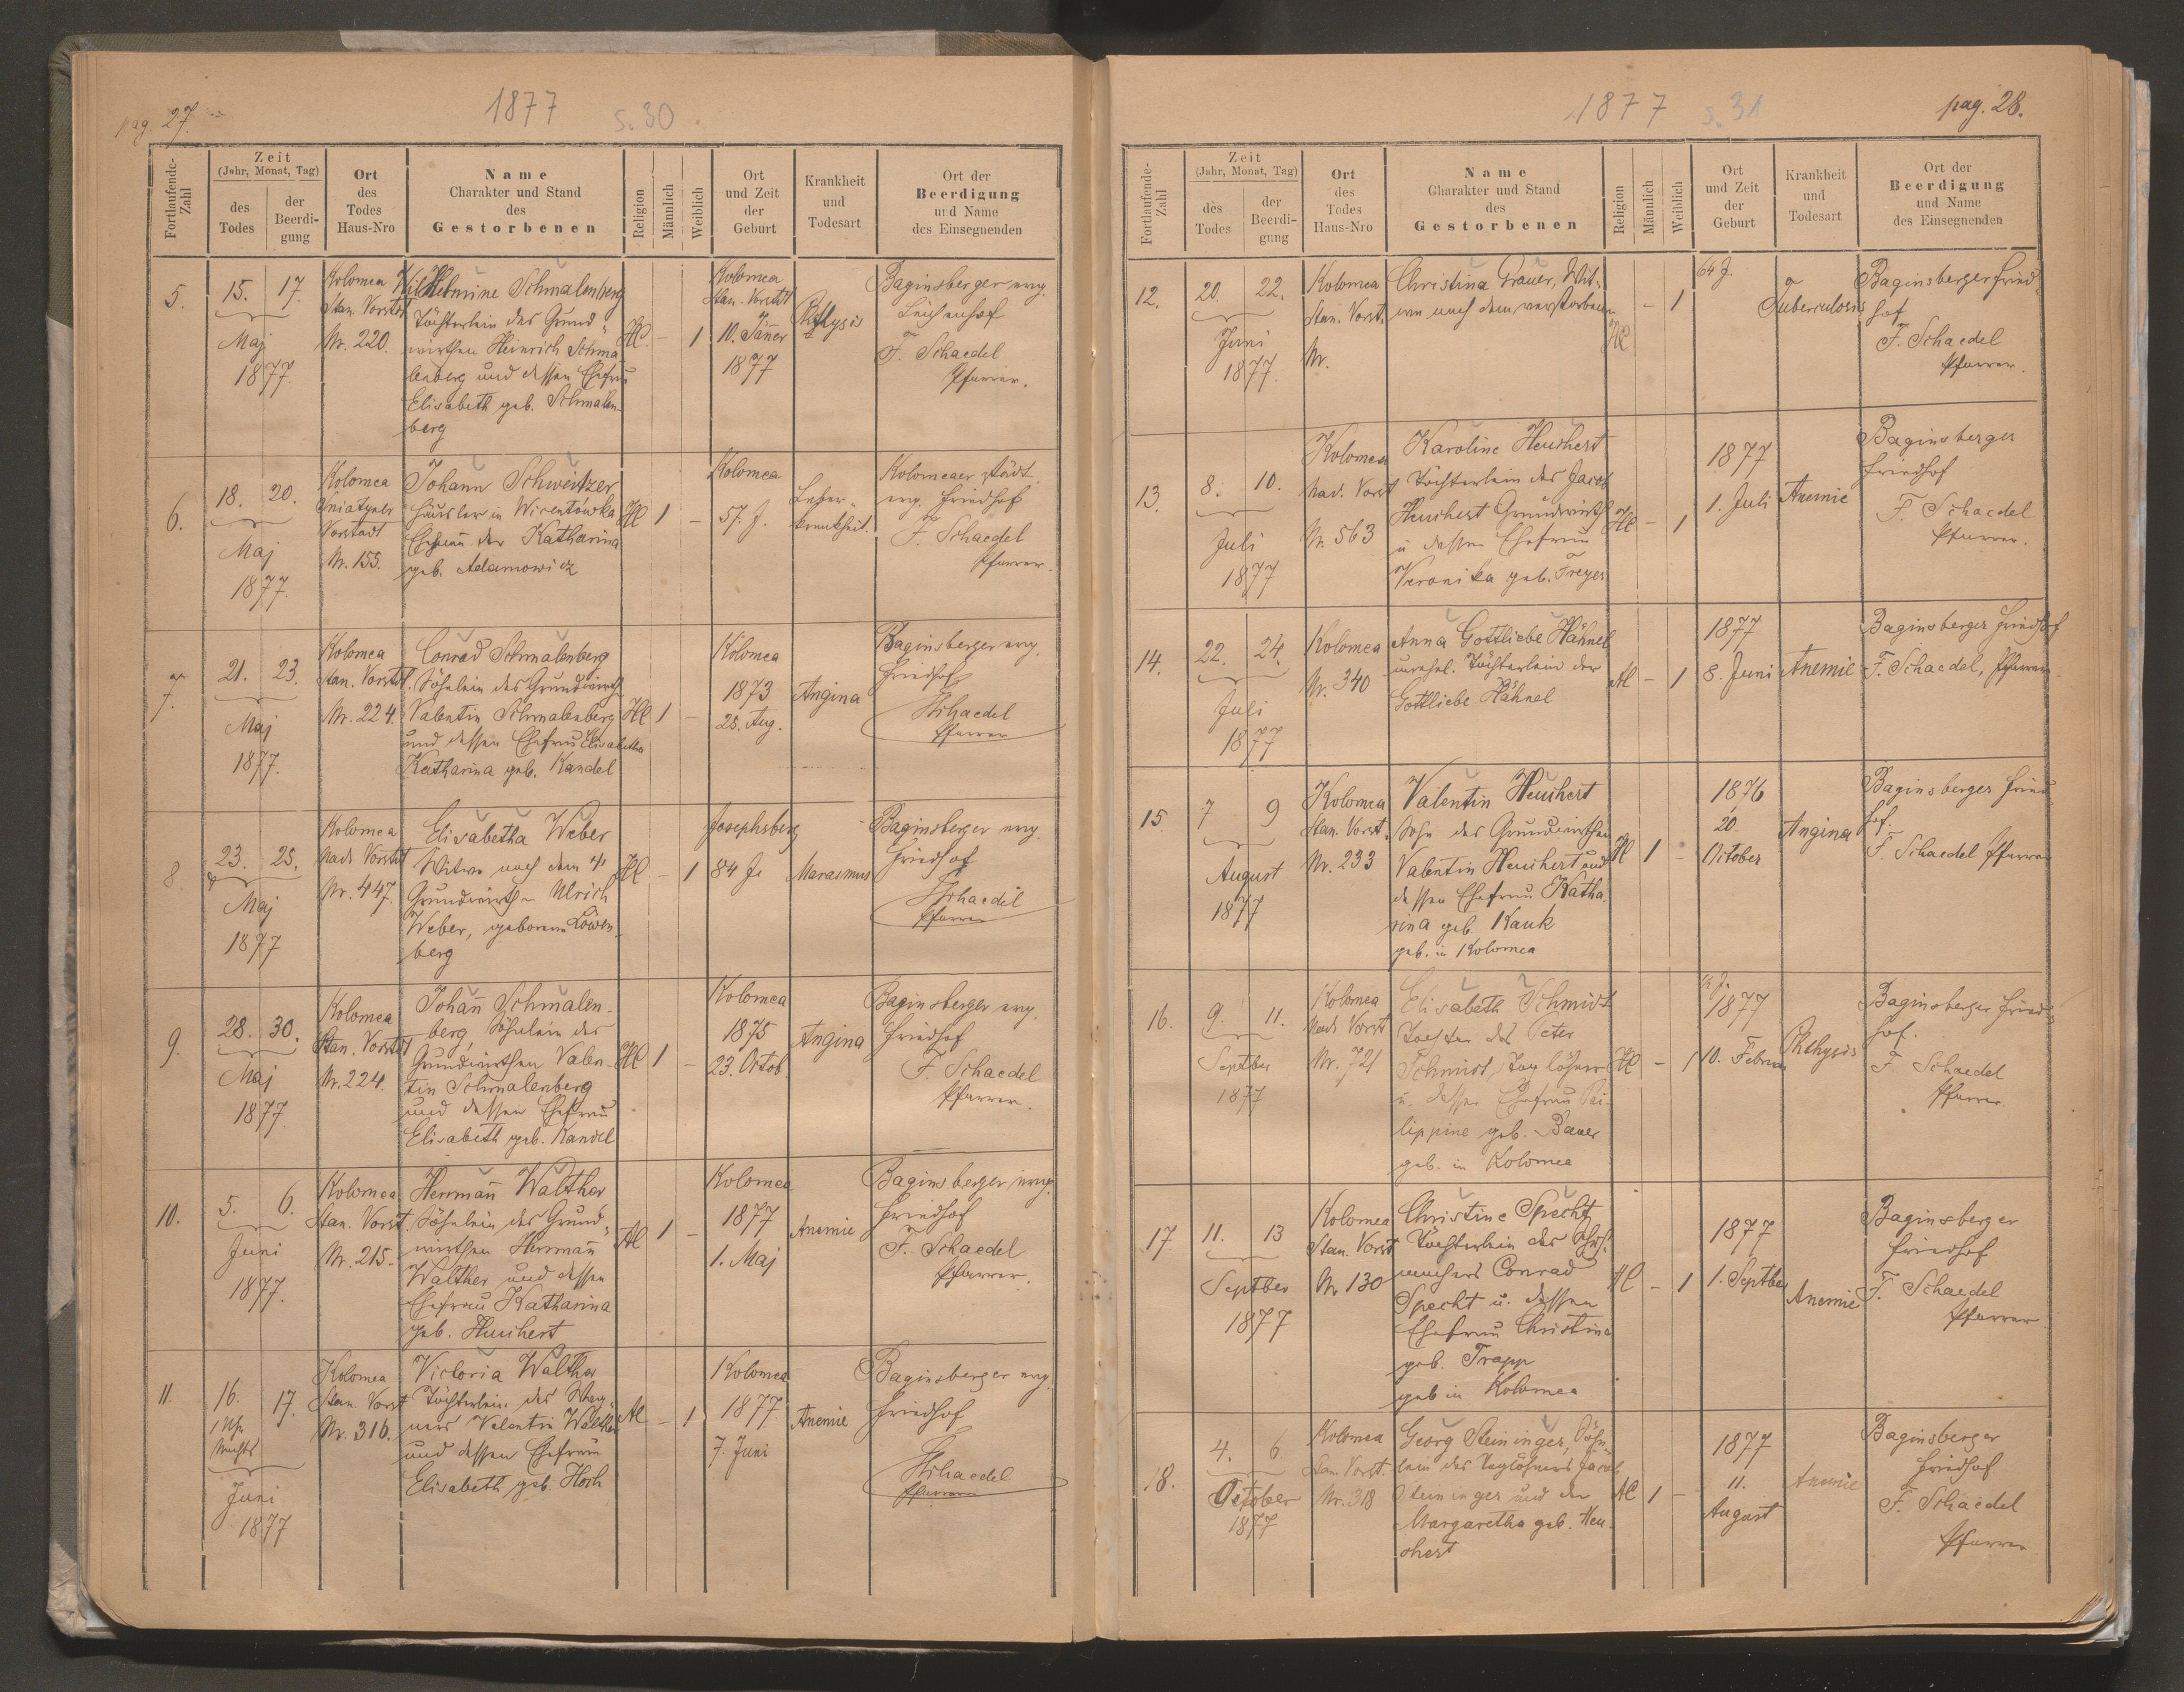 pag. 27.
1877
s. 30
Fortlaufende-Zahl
Zeit
(Jahr, Monat, Tag)
des Todes
der Beerdigung
Ort des Todes Haus-Nro
Name
Charakter und Stand
des
Gestorbenen
Religion
Männlich
Weiblich
Ort und Zeit der Geburt
Krankheit und Todesart
Ort der
Beerdigung
und Name
des Einsegnenden
5.
15. 17.
Maj
1877.
Kolomea
Stan. Vorstdt
Nr. 220.
Wilhelmine Schmalenberg
Töchterlein des Grund-
wirthen Heinrich Schma-
lenberg und dessen Ehefrau
Elisabeth geb. Schmalen-
berg
HC
- 1
Kolomea
Stan. Vorstdt
10. Jänner
1877
Phthysis
Baginsberger evng.
Leichenhof
F. Schaedel
Pfarrer.
6.
18. 20.
Maj
1877.
Kolomea
Sniatyner
Vorstadt
Nr. 155.
Johann Schweitzer
Häusler in Wicentówka
Ehemann der Katharina
geb. Adamowicz
HC
1 -
Kolomea
57. J.
Leber-
krankheit.
Kolomeaer städt.
evng. Friedhof
F. Schaedel
Pfarrer.
7.
21. 23.
Maj
1877.
Kolomea
Stan. Vorstdt.
Nr. 224.
Conrad Schmalenberg
Söhnlein des Grundwirth
Valentin Schmalenberg
und dessen Ehefrau Elisabetha
Katharina geb. Kandel
HC
1 -
Kolomea
1873
25. Aug.
Angina
Baginsberger evng.
Friedhof
FSchaedel
Pfarrer
8.
23. 25.
Maj
1877
Kolomea
Nad. Vorstdt
Nr. 447.
Elisabetha Weber
Witwe nach dem
Grundwirthen Ulrich
Weber, geborene Löwen-
berg
HC
- 1
Josephsberg
84 J.
Marasmus
Baginsberger evng.
Friedhof
FSchaedel
Pfarrer
9.
28. 30.
Maj
1877.
Kolomea
Stan. Vorstdt
Nr. 224.
Johañ Schmalen-
berg, Söhnlein des
Grundwirthen Valen-
tin Schmalenberg
und dessen Ehefrau
Elisabeth geb. Kandel
HC
1 -
Kolomea
1875
23. Octob.
Angina
Baginsberger evng.
Friedhof
F. Schaedel
Pfarrer.
10.
5. 6.
Juni
1877.
Kolomea
Stan. Vorst.
Nr. 215.
Herrmañ Walther
Söhnlein des Grund-
wirthen Herrmañ
Walther und dessen
Ehefrau Katharina
geb. Heuchert
AC
1 -
Kolomea
1877
1. Maj
Anemie
Baginsberger evng.
Friedhof
F. Schaedel
Pfarrer.
11.
16. 17.
1 Uhr
Nachts
Juni
1877
Kolomea
Stan. Vorst
Nr. 316.
Victoria Walther
Töchterlein des
Valentin Walther
und dessen Ehefrau
Elisabeth geb. Hoch
AC
- 1
Kolomea
1877
7. Juni
Anemie
Baginsberger evng.
Friedhof
FSchaedel
Pfarrer
1877
s. 31
pag. 28.
Fortlaufende-Zahl
Zeit
(Jahr, Monat, Tag)
des Todes
der Beerdigung
Ort des Todes Haus-Nro
Name
Charakter und Stand
des
Gestorbenen
Religion
Männlich
Weiblich
Ort und Zeit der Geburt
Krankheit und Todesart
Ort der
Beerdigung
und Name
des Einsegnenden
12.
20. 22.
Juni
1877.
Kolomea
Stan. Vorst.
Nr.
Christina Grauer, Wit-
we nach dem verstorbenen
HC
- 1
64 J.
Tuberculosis
Baginsberger Fried-
hof
F. Schaedel
Pfarrer.
13.
8. 10.
Juli
1877
Kolomea
Nad. Vorst
Nr. 563
Karoline Heuchert
Töchterlein des Jacob
Heuchert Grundwirth
u dessen Ehefrau
Veronika geb. Freyer
HC
- 1
1877
1. Juli
Anemie
Baginsberger
Friedhof
F. Schaedel
Pfarrer.
14.
22. 24.
Juli
1877
Kolomea
Nr. 340
Anna Gottliebe Hähnel
unehel. Töchterlein der
Gottliebe Hähnel
AC
- 1
1877
8. Juni
Anemie
Baginsberger Friedhof
F. Schaedel, Pfarrer
15
7 9
August
1877
Kolomea
Stan. Vorst.
Nr. 233
Valentin Heuchert
Sohn des Grundwirthen
Valentin Heuchert und
dessen Ehefrau Katha-
rina geb. Kauk
geb. in Kolomea
HC
1 -
1876
20.
October
Angina
Baginsberger Fried-
hof.
F. Schaedel Pfarrer
16.
9. 11.
Septber
1877
Kolomea
Nad. Vorst
Nr. 721
Elisabeth Schmidt
Tochter des Peter
Schmidt, Taglöhner
u. dessen Ehefrau Phi-
lippine geb. Bauer
geb. in Kolomea
HC
- 1
½ J.
1877
10. Februar
Phthysis
Baginsberger Fried-
hof.
F. Schaedel
Pfarrer
17
11. 13
Septber
1877
Kolomea
Stan. Vorst
Nr 130
Christine Specht
Töchterlein des
machers Conrad
Specht u. dessen
Ehefrau Christina
geb. Trapp
geb in Kolomea
HC
- 1
1877
1. Septber
Anemie
Baginsberger
Friedhof
F. Schaedel
Pfarrer
18.
4. 6
October
1877
Kolomea
Stan. Vorst.
Nr. 318
Georg Steininger, Söhn-
lein des Taglöhners Jacob
Steininger und der
Margaretha geb. Heu-
chert
AC
1 -
1877
11.
August
Anemie
Baginsberger
Friedhof
F. Schaedel
Pfarrer